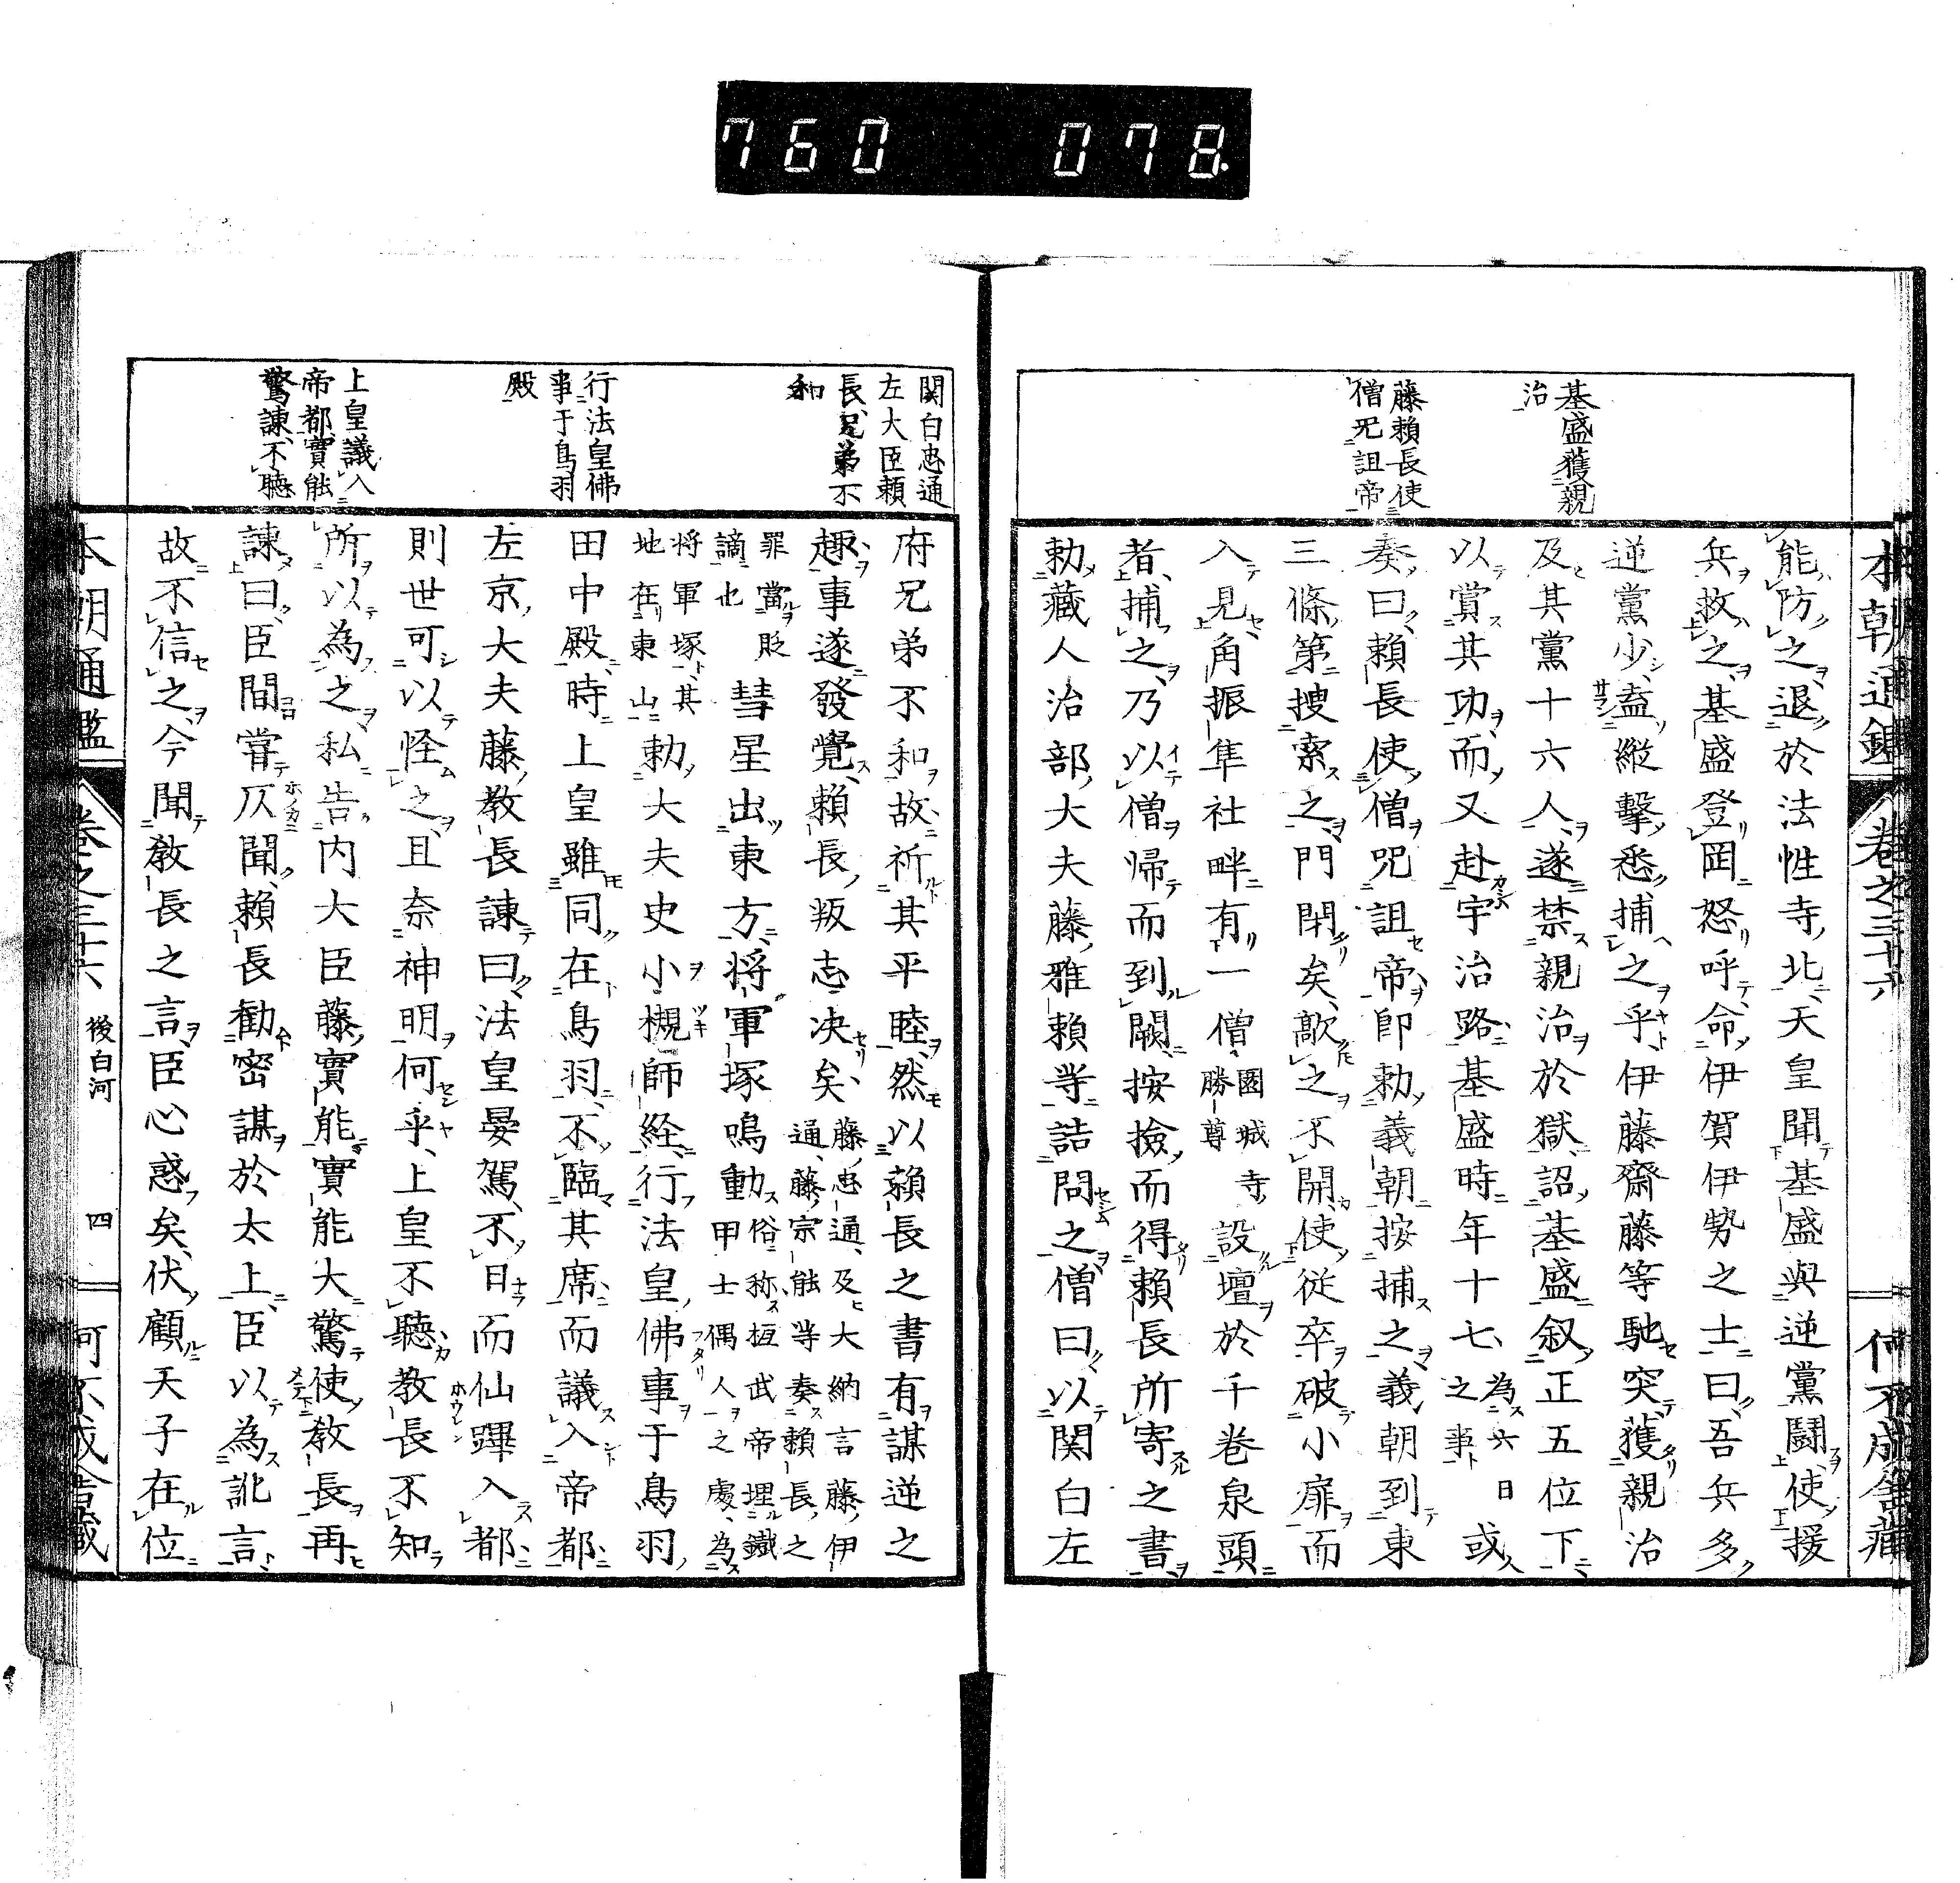 760 078
基盛獲親
治
藤賴長使
僧咒詛帝
能防之退於法性寺北天皇聞基盛與逆黨鬪使援
兵救之基盛登罔怒呼命伊賀伊勢之士曰吾兵多
逆黨少盍縱擊悉捕之乎伊藤齋藤等馳突獲親治
及其黨十六人遂禁親治於獄詔基盛叙正五位下
以賞其功而又赴宇治路基盛時年十七為六日或之事
奏曰賴長使僧咒詛帝即勅義朝按捕之義朝到東
三條第搜索之門閉矣敲之不開使從卒破小扉而
入見角振隼社畔有一僧園城寺勝尊設壇於千卷泉頭
者捕之乃以僧歸而到闕按撿而得賴長所寄之書
勅藏人治部大夫藤雅賴等詰問之僧曰以関白左
関白忠通
左大臣賴
長兄弟不
和
行法皇佛
事于鳥羽
殿
上皇議入
帝都實能
驚諫不聽
府兄弟不和故祈其平睦然以賴長之書有謀逆之
趣事遂發覺賴長叛志决矣藤忠通及大納言藤伊通藤宗能等奏賴長之
罪當貶謫也彗星出東方將軍塚鳴動俗称桓武帝埋鐵甲士偶人之處為
将軍塚其地在東山勅大夫史小槻師経行法皇佛事于鳥羽
田中殿時上皇雖同在鳥羽不臨其席而議入帝都
左京大夫藤教長諫曰法皇晏駕不日而仙蹕入都
則世可以怪之且奈神明何乎上皇不聽教長不知
所以為之私告内大臣藤實能實能大驚使教長再
諫曰臣間甞仄聞賴長勸密謀於太上臣以為訛言
故不信之今聞教長之言臣心惑矣伏顧天子在位
本朝通鑑 卷之三十六 後白河 四